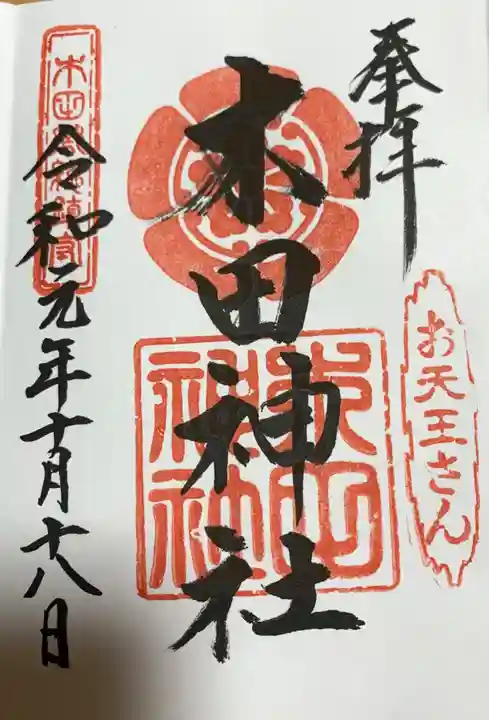 奉拝
お天王さん
木田神社
木田神社
令和元年十月十八日